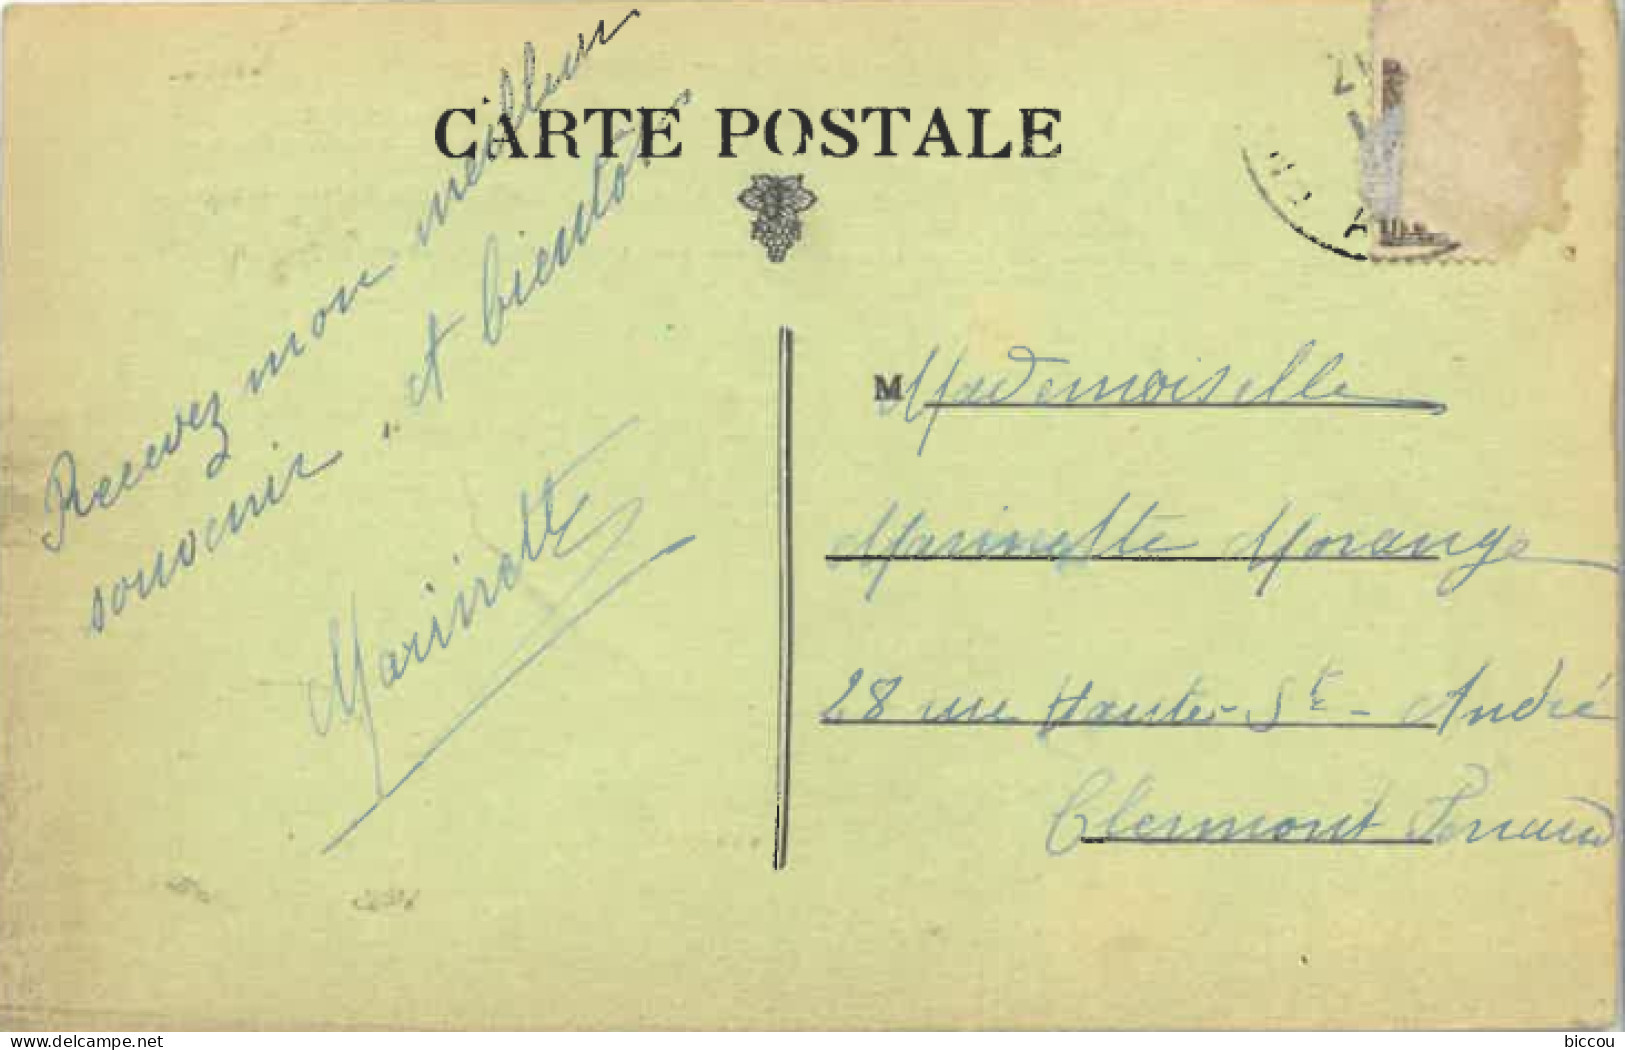 CARTE POSTALE
Recevez mon meilleur
souvenir „ et bientôt
Marinette
M Mademoiselle
Marinette Morange
28 rue Haute-St-André
Clermont Ferrand
www.delcampe.net
biccou